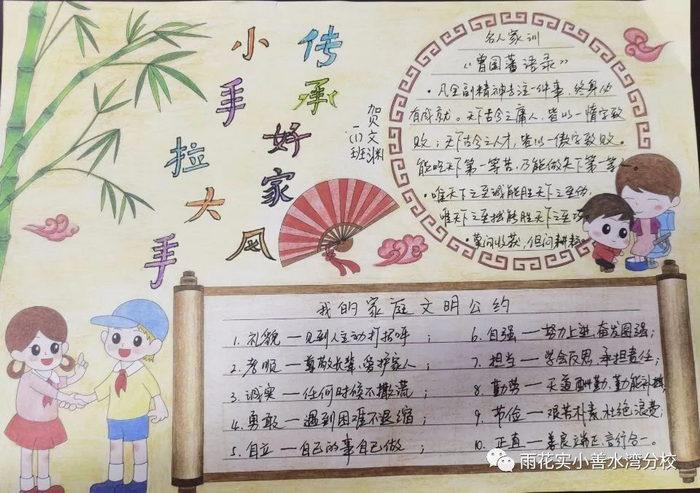 小手拉大手
传承好家风
贺文渊
(1)班
名人家训
《曾国藩语录》
·凡全副精神专注一件事,终身必
有成就。天下古今之庸人,皆以一惰字致
败;天下古今之人才,皆以一傲字致败。
能吃天下第一等苦,乃能做天下第一等
·唯天下之至诚能胜天下之至伪,
唯天下之至拙能胜天下之至巧
·莫问收获,但问耕耘
我的家庭文明公约
1.礼貌—见到人主动打招呼;
2.孝顺—尊敬长辈,爱护家人;
3.诚实—任何时候不撒谎;
4.勇敢—遇到困难不退缩;
5.自立—自己的事自己做;
6.自强—努力上进,奋发图强;
7.担当—学会反思,承担责任;
8.勤劳—天道酬勤,勤能补拙;
9.节俭—艰苦朴素,杜绝浪费;
10.正直—善良端正,言行合一。
雨花实小善水湾分校